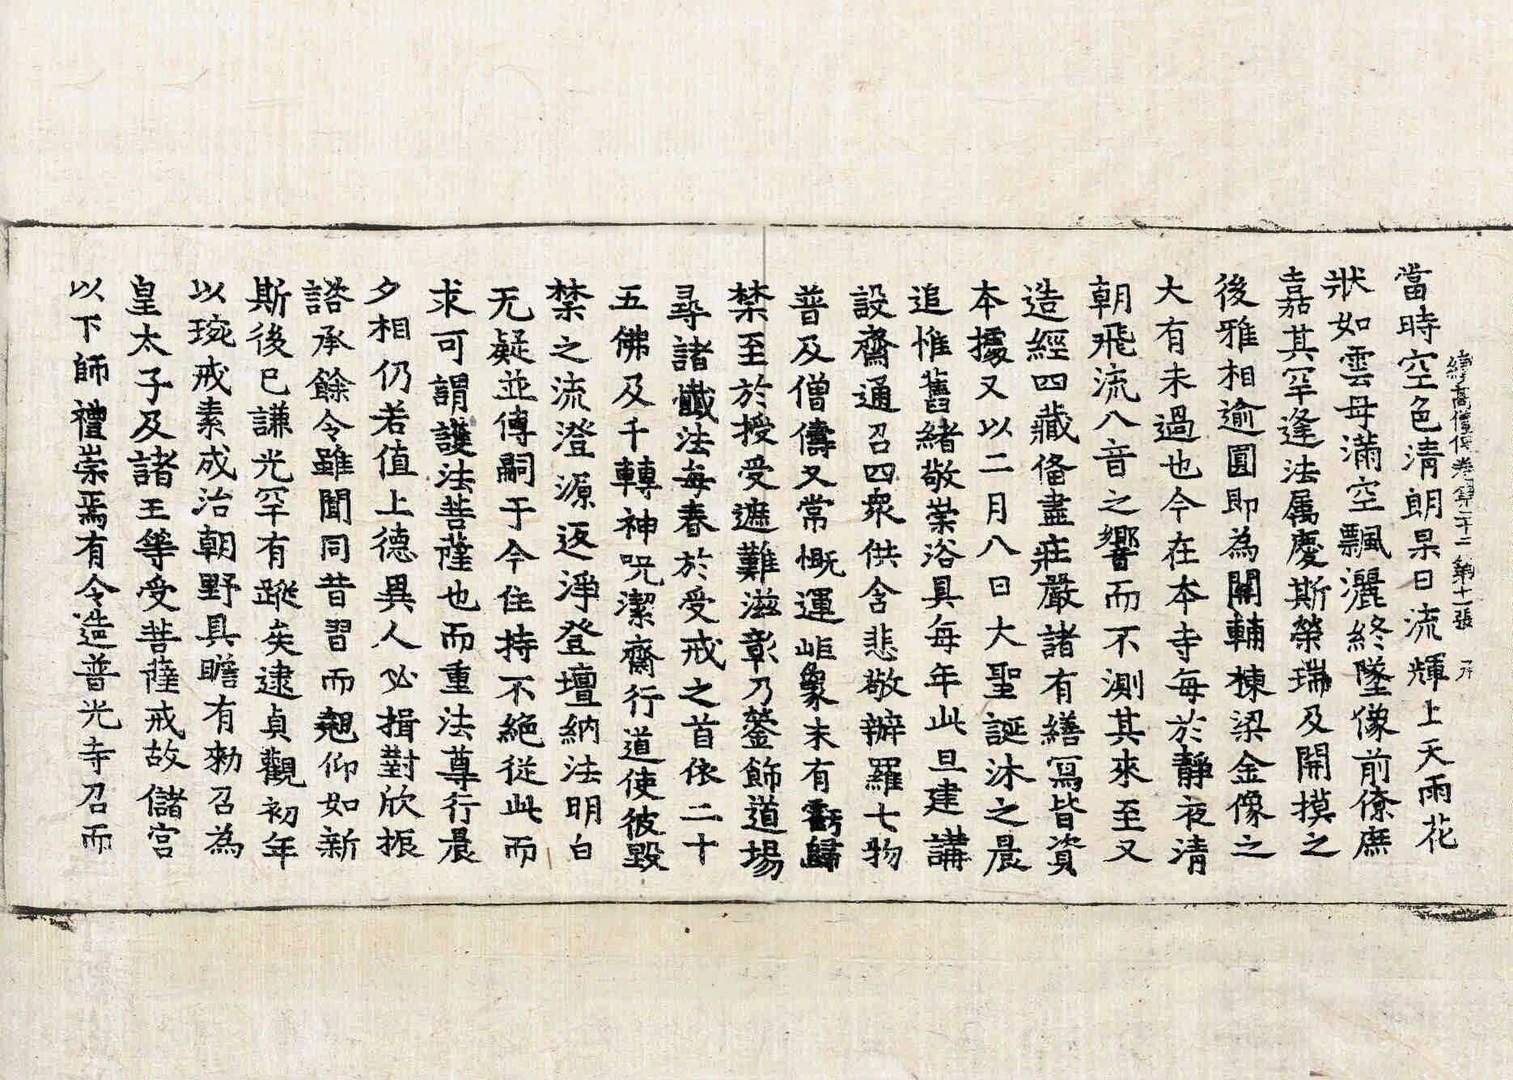 續高僧傳卷第二十二 第十一張
當時空色清朗杲日流輝上天雨花
狀如雲母滿空飄灑終墜像前僚庶
嘉其罕逢法属慶斯榮瑞及開摸之
後雅相逾圓即為關輔棟梁金像之
大有未過也今在本寺每於靜夜清
朝飛流八音之響而不測其來至又
造經四藏俻盡莊嚴諸有繕寫皆資
本據又以二月八日大聖誕沐之晨
追惟舊緒敬崇浴具每年此旦建講
設齋通召四衆供含悲敬辦羅七物
普及僧儔又常慨運岠象末有虧歸
禁至於授受遮難滋彰乃鎣飾道場
尋諸懺法每春於受戒之首依二十
五佛及千轉神呪潔齋行道使彼毀
禁之流澄源返淨登壇納法明白
无疑並傳嗣于今住持不絕從此而
求可謂護法菩薩也而重法尊行晨
夕相仍若值上德異人必揖對欣振
諮承餘令雖聞同昔習而翹仰如新
斯後已謙光罕有蹤矣逮貞觀初年
以琬戒素成治朝野具瞻有勑召為
皇太子及諸王等受菩薩戒故儲宮
以下師禮崇焉有令造普光寺召而